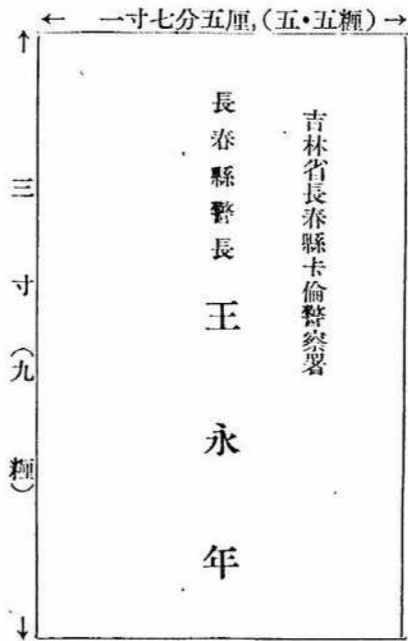 ← 一寸七分五厘,(五•五糎)→
↑三寸(九糎)↓
吉林省長春縣卡倫警察署
長春縣警長 王永年